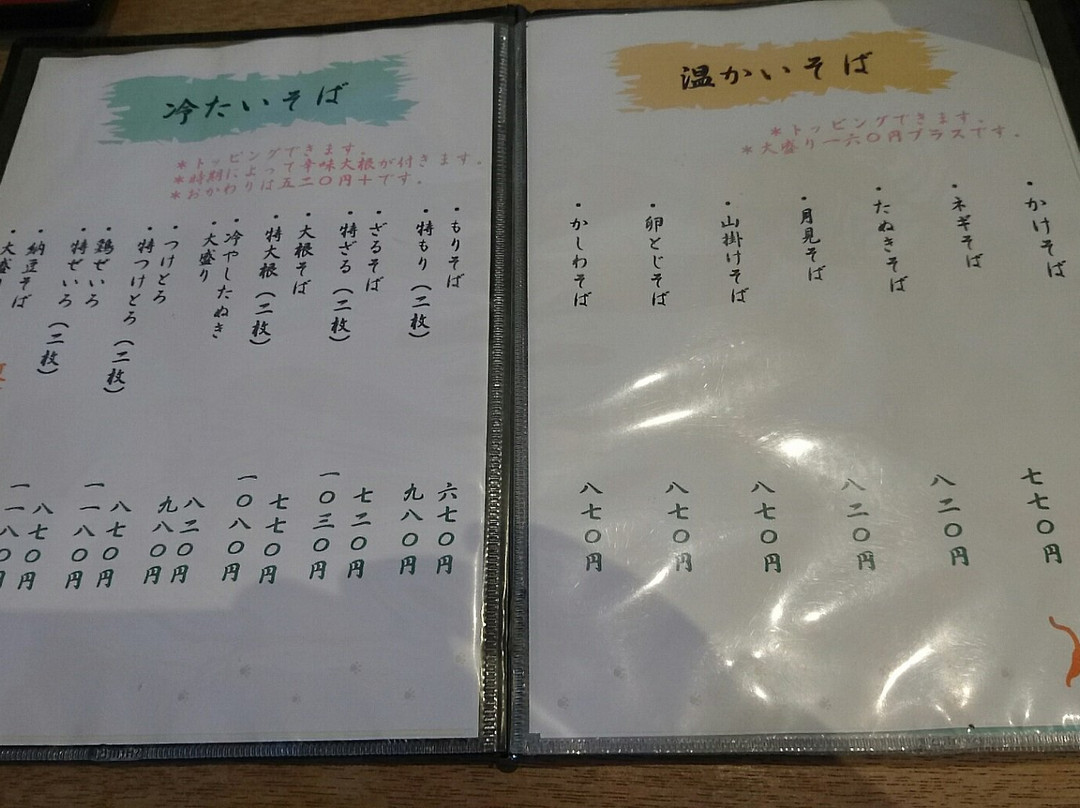 温かいそば
＊トッピングできます。
＊大盛り一六〇円プラスです。
・かけそば
・ネギそば
・たぬきそば
・月見そば
・山掛けそば
・卵とじそば
・かしわそば
七七〇円
八二〇円
八二〇円
八七〇円
八七〇円
八七〇円
冷たいそば
＊トッピングできます。
＊時期によって辛味大根が付きます。
＊おかわりは五二〇円＋です。
・もりそば
・特もり（二枚）
・ざるそば
・特ざる（二枚）
・大根そば
・特大根（二枚）
・冷やしたぬき
・大盛り
・つけとろ
・特つけとろ（二枚）
・鶏ぜいろ
・特ぜいろ（二枚）
・納豆そば
・大盛り
六七〇円
九八〇円
七二〇円
一〇三〇円
七七〇円
一〇八〇円
八二〇円
九八〇円
八七〇円
一一八〇円
八七〇円
一一八〇円